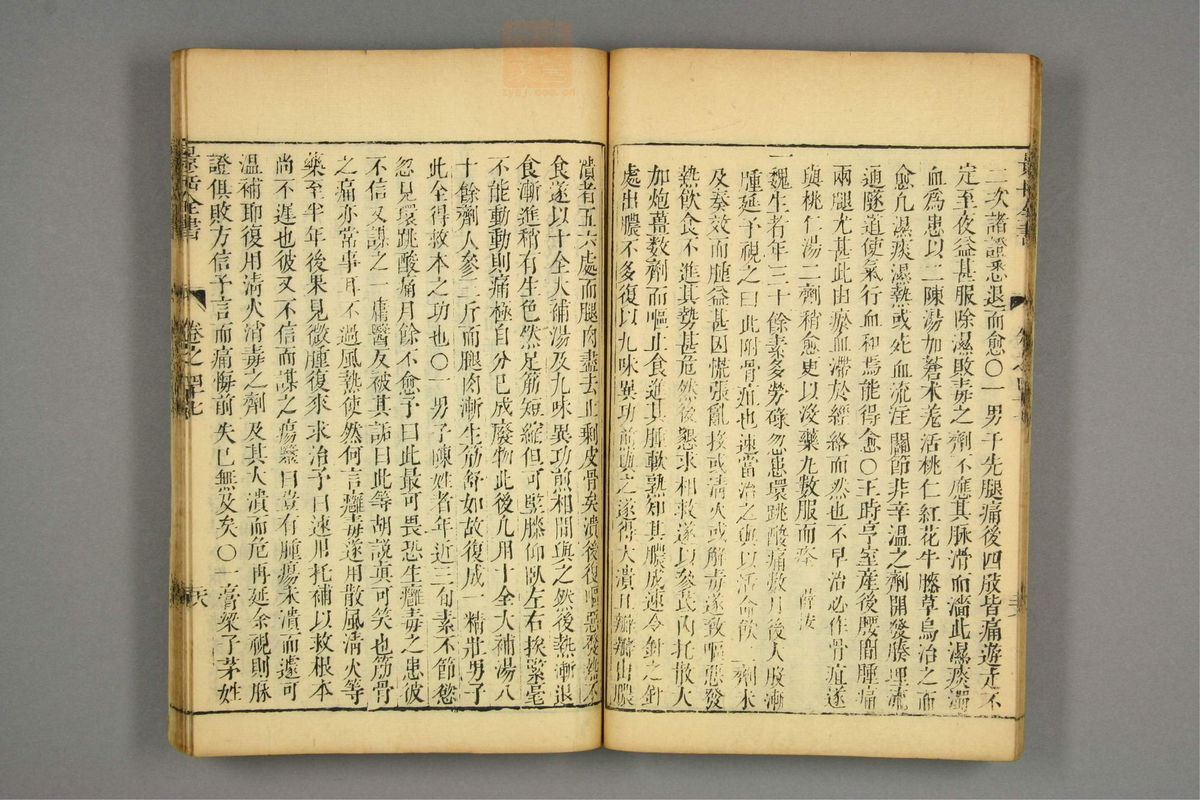 二次諸證悉退而愈○一男子先腿痛後四肢皆痛遊走不
定至夜益甚服除濕敗毒之劑不應其脉滑而濇此濕痰濁
血爲患以二陳湯加蒼术羗活桃仁紅花牛膝草烏治之而
愈凡濕痰濕熱或死血流注關節非辛温之劑開發腠理流
通隧道使氣行血和焉能得愈○王時亨室産後腰間腫痛
兩腿尤甚此由瘀血滯於經絡而然也不早治必作骨疽遂
與桃仁湯二劑稍愈更以没藥丸數服而痊 薛按
一魏生者年三十餘素多勞碌忽患環跳酸痛數月後大股漸
腫延予視之曰此附骨疽也速當治之與以活命飲二劑未
及奏效而腫益甚因慌張亂投或清火或解毒遂致嘔惡發
熱飲食不進其勢甚危然後懇求相救遂以參芪内托散大
加炮薑數劑而嘔止食進其腫軟熟知其膿成速令針之針
處出膿不多復以九味異功煎與之遂得大潰且瓣瓣出膿
潰者五六處而腿肉盡去止剩皮骨矣潰後復嘔惡發熱不
食遂以十全大補湯及九味異功煎相間與之然後熱漸退
食漸進稍有生色然足筋短縮但可竪膝仰臥左右挨緊毫
不能動動則痛極自分已成廢物此後凡用十全大補湯八
十餘劑人參三斤而腿肉漸生筋舒如故復成一精壯男子
此全得救本之功也○一男子陳姓者年近三旬素不節慾
忽見環跳酸痛月餘不愈予曰此最可畏恐生癰毒之患彼
不信又謀之一庸醫反被其詬曰此等胡說真可笑也筋骨
之痛亦常事耳不過風熱使然何言癰毒遂用散風清火等
藥至半年後果見微腫復來求治予曰速用托補以救根本
尚不遲也彼又不信而謀之瘍醫曰豈有腫瘍未潰而遽可
温補耶復用清火消毒之劑及其大潰而危再延余視則脉
證俱敗方信予言而痛悔前失已無及矣○一膏粱子茅姓
景岳全書
卷之四十七